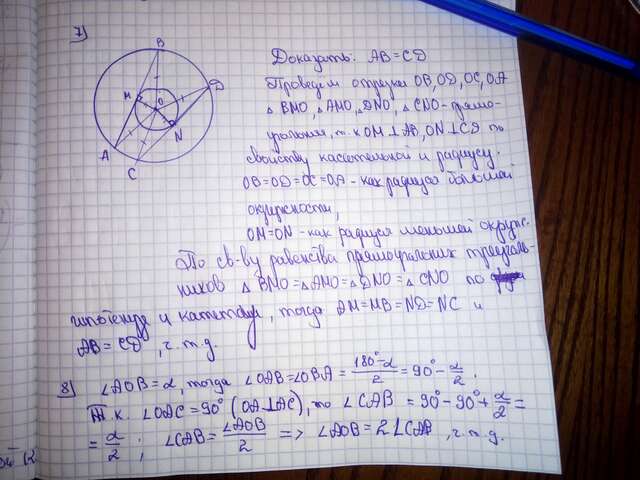 7)
B
D
M
O
N
A
C
Доказать: AB = CD
Проведем отрезки OB, OD, OC, OA
△BMO, △AMO, △DNO, △CNO - прямо-
угольные, т.к OM⊥AB, ON⊥CD по
свойству касательной и радиусу.
OB=OD=OC=OA - как радиуса большей
окружности,
OM=ON - как радиуса меньшей окруж-
По св-ву равенства прямоугольных треуголь-
ников △BMO = △AMO = △DNO = △CNO по
гипотенузе и катету, тогда AM=MB=ND=NC и
AB = CD, ч.т.д.
8) ∠AOB = α, тогда ∠OAB = ∠OBA = (180°-α)/2 = 90° - α/2.
Т.к. ∠OAC = 90° (OA⊥AC), то ∠CAB = 90° - 90° + α/2 =
= α/2; ∠CAB = ∠AOB/2 => ∠AOB = 2∠CAB, ч.т.д.